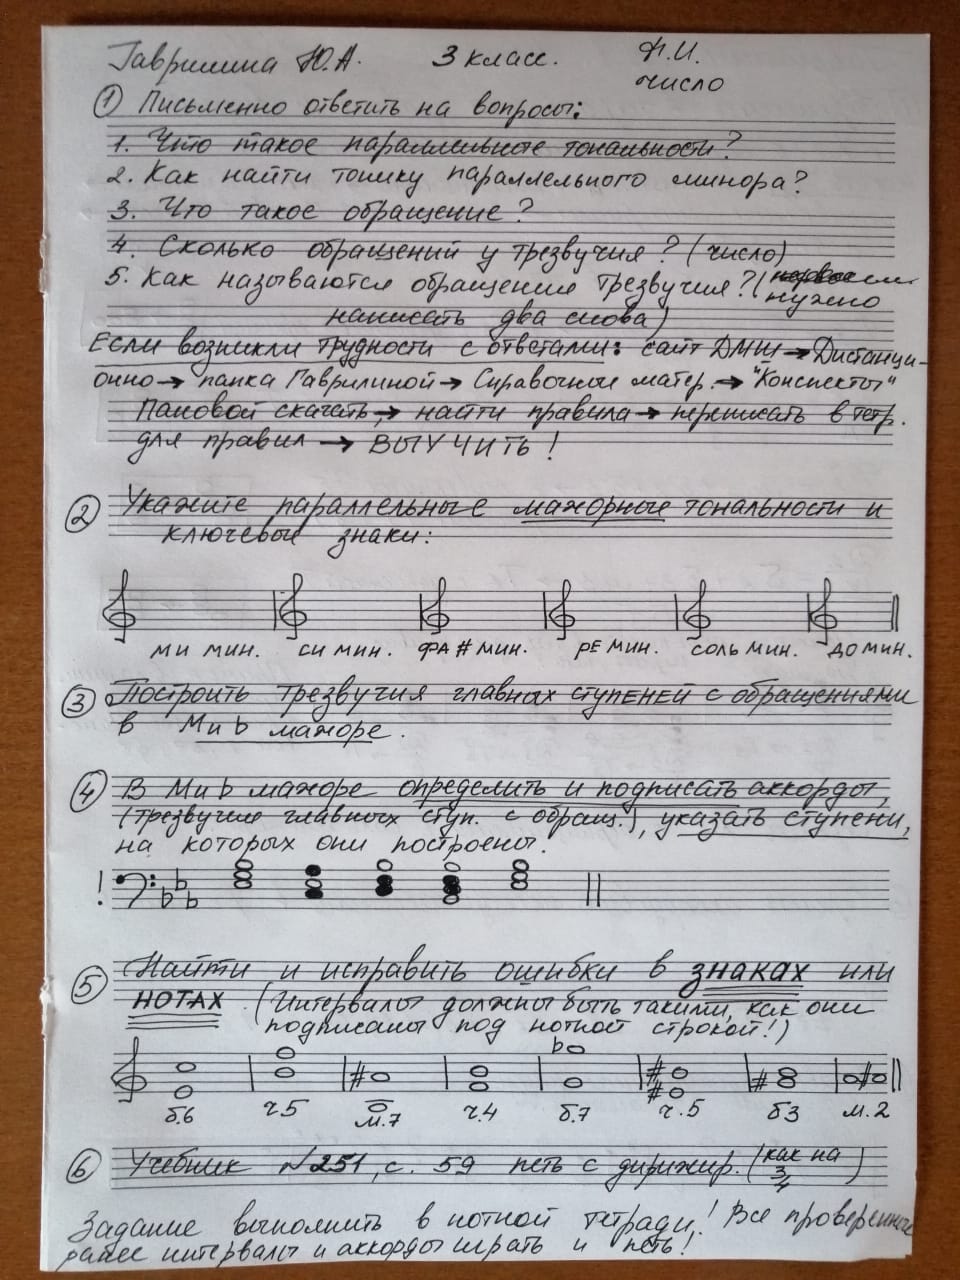 Гаврилина Ю.А. 3 класс. Ф.И.
число
① Письменно ответить на вопросы:
1. Что такое параллельные тональности?
2. Как найти тонику параллельного минора?
3. Что такое обращение?
4. Сколько обращений у трезвучия? (число)
5. Как называются обращения трезвучия? (
нужно
написать два слова)
Если возникли трудности с ответами: сайт ДМШ → Дистанци-
онно → папка Гаврилиной → Справочные матер. → "Конспекты"
Пановой скачать → найти правила → переписать в тетр.
для правил → ВЫУЧИТЬ!
② Укажите параллельные мажорные тональности и
ключевые знаки:
МИ МИН. СИ МИН. ФА # МИН. РЕ МИН. СОЛЬ МИН. ДО МИН.
③ Построить трезвучия главных ступеней с обращениями
в Ми b мажоре.
④ В Ми b мажоре определить и подписать аккорды,
(трезвучия главных ступ. с обращ.), указать ступени,
на которых они построены.
!
⑤ Найти и исправить ошибки в знаках или
НОТАХ (Интервалы должны быть такими, как они
подписаны под нотной строкой!)
б.6 ч.5 м.7 ч.4 б.7 ч.5 б3 м.2
⑥ Учебник №251, с. 59 петь с дирижир. (как на
3/4)
Задание выполнить в нотной тетради! Все проверенные
ранее интервалы и аккорды играть и петь!